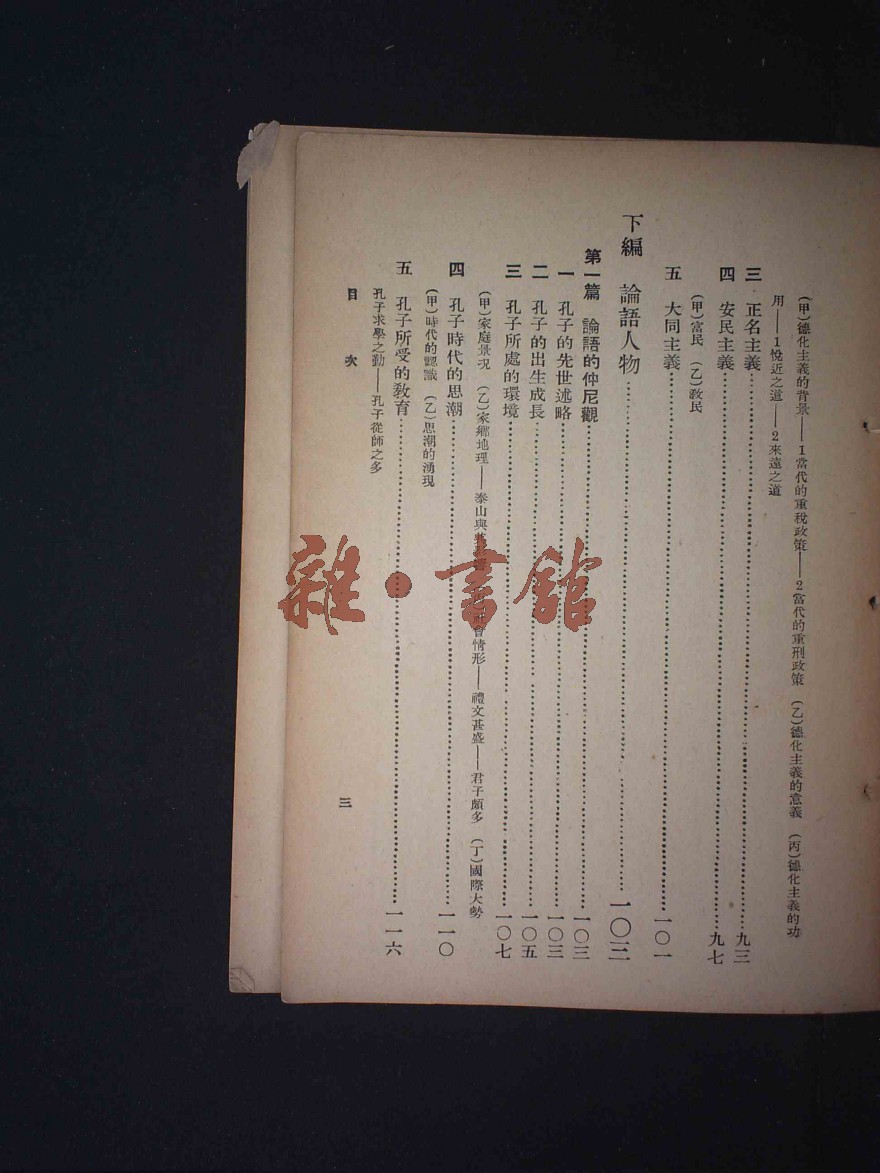 (甲)德化主義的背景——1當代的重稅政策——2當代的重刑政策 (乙)德化主義的意義 (丙)德化主義的功
用——1悅近之道——2來遠之道
三 正名主義……九三
四 安民主義……九七
(甲)富民 (乙)敎民
五 大同主義……一〇一
下編 論語人物……一〇三
第一篇 論語的仲尼觀……一〇三
一 孔子的先世述略……一〇三
二 孔子的出生成長……一〇五
三 孔子所處的環境……一〇七
(甲)家庭景况 (乙)家鄉地理——泰山與 社會情形——禮文甚盛——君子頗多 (丁)國際大勢
四 孔子時代的思潮……一一〇
(甲)時代的認識 (乙)思潮的湧現
五 孔子所受的敎育……一一六
孔子求學之勤——孔子從師之多
目 次
三
雜·書館